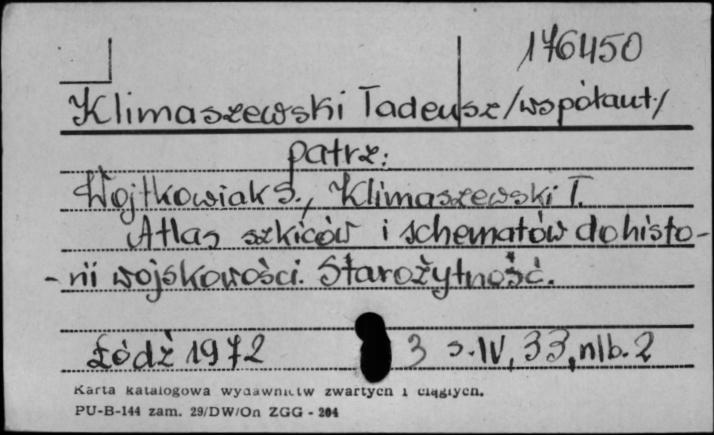 176450
Klimaszewski Tadeusz/współaut./
patrz:
Wojtkowiak S., Klimaszewski T.
Atlas szkiców i schematów do histo-
-rii wojskowości. Starożytność.
Łódź 1972 3 s. IV, 33, nlb. 2
Karta katalogowa wydawnictw zwartych i ciągłych.
PU-B-144 zam. 29/DW/On ZGG - 204